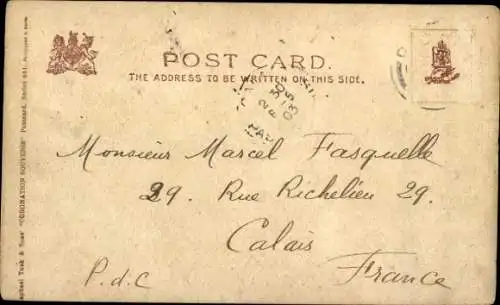 POST CARD.
THE ADDRESS TO BE WRITTEN ON THIS SIDE.
Monsieur Marcel Fasquelle
29. Rue Richelieu 29.
Calais
P.d.C France
Raphael Tuck & Sons' "CORONATION SOUVENIR" Postcard, Series 641.